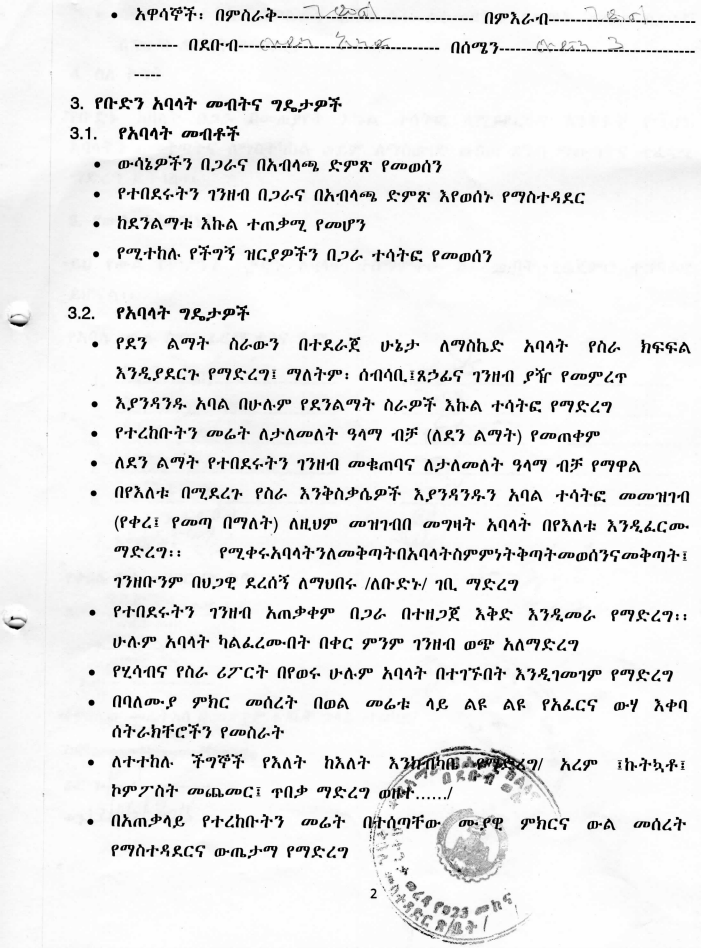 • አዋሳኞች፡ በምስራቅ---------------------------------- በምእራብ-------------------------
-------- በደቡብ----------------------------------- በሰሜን----------------------------------
-----
3. የቡድን አባላት መብትና ግዴታዎች
3.1. የአባላት መብቶች
• ውሳኔዎችን በጋራና በአብላጫ ድምጽ የመወሰን
• የተበደሩትን ገንዘብ በጋራና በአብላጫ ድምጽ እየወሰኑ የማስተዳደር
• ከደንልማቱ እኩል ተጠቃሚ የመሆን
• የሚተከሉ የችግኝ ዝርያዎችን በጋራ ተሳትፎ የመወሰን
3.2. የአባላት ግዴታዎች
• የደን ልማት ስራውን በተደራጀ ሁኔታ ለማስኬድ አባላት የስራ ክፍፍል
እንዲያደርጉ የማድረግ፤ ማለትም፡ ሰብሳቢ፤ጸኃፊና ገንዘብ ያዥ የመምረጥ
• እያንዳንዱ አባል በሁሉም የደንልማት ስራዎች እኩል ተሳትፎ የማድረግ
• የተረከቡትን መሬት ለታለመለት ዓላማ ብቻ (ለደን ልማት) የመጠቀም
• ለደን ልማት የተበደሩትን ገንዘብ መቁጠባና ለታለመለት ዓላማ ብቻ የማዋል
• በየእለቱ በሚደረጉ የስራ እንቅስቃሴዎች እያንዳንዱን አባል ተሳትፎ መመዝገብ
(የቀረ፤ የመጣ በማለት) ለዚህም መዝገብበ መግዛት አባላት በየእለቱ እንዲፈርሙ
ማድረግ፡፡ የሚቀሩአባላትንለመቅጣትበአባላትስምምነትቅጣትመወሰንናመቅጣት፤
ገንዘቡንም በህጋዊ ደረሰኝ ለማህበሩ /ለቡድኑ/ ገቢ ማድረግ
• የተበደሩትን ገንዘብ አጠቃቀም በጋራ በተዘጋጀ እቅድ እንዲመራ የማድረግ፡፡
ሁሉም አባላት ካልፈረሙበት በቀር ምንም ገንዘብ ወጭ አለማድረግ
• የሂሳብና የስራ ሪፖርት በየወሩ ሁሉም አባላት በተገኙበት እንዲገመገም የማድረግ
• በባለሙያ ምክር መሰረት በወል መሬቱ ላይ ልዩ ልዩ የአፈርና ውሃ እቀባ
ሰትራክቸሮችን የመስራት
• ለተተከሉ ችግኞች የእለት ከእለት እንክብካቤ የማድረግ/ አረም ፤ኩትኳቶ፤
ኮምፖስት መጨመር፤ ጥበቃ ማድረግ ወዘተ....../
• በአጠቃላይ የተረከቡትን መሬት በተሰጣቸው ሙያዊ ምክርና ውል መሰረት
የማስተዳደርና ውጤታማ የማድረግ
2